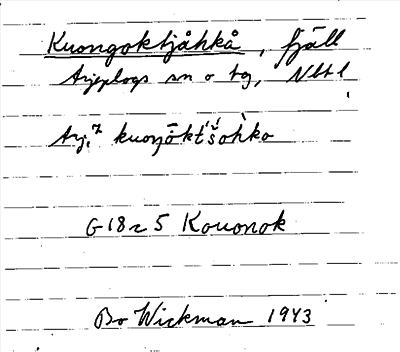 Kuongoktjåhkå, fjäll
Arjeplogs sn o tg, Nbt l
Arj.
G18r 5 Kouonok
Bo Wickman 1943